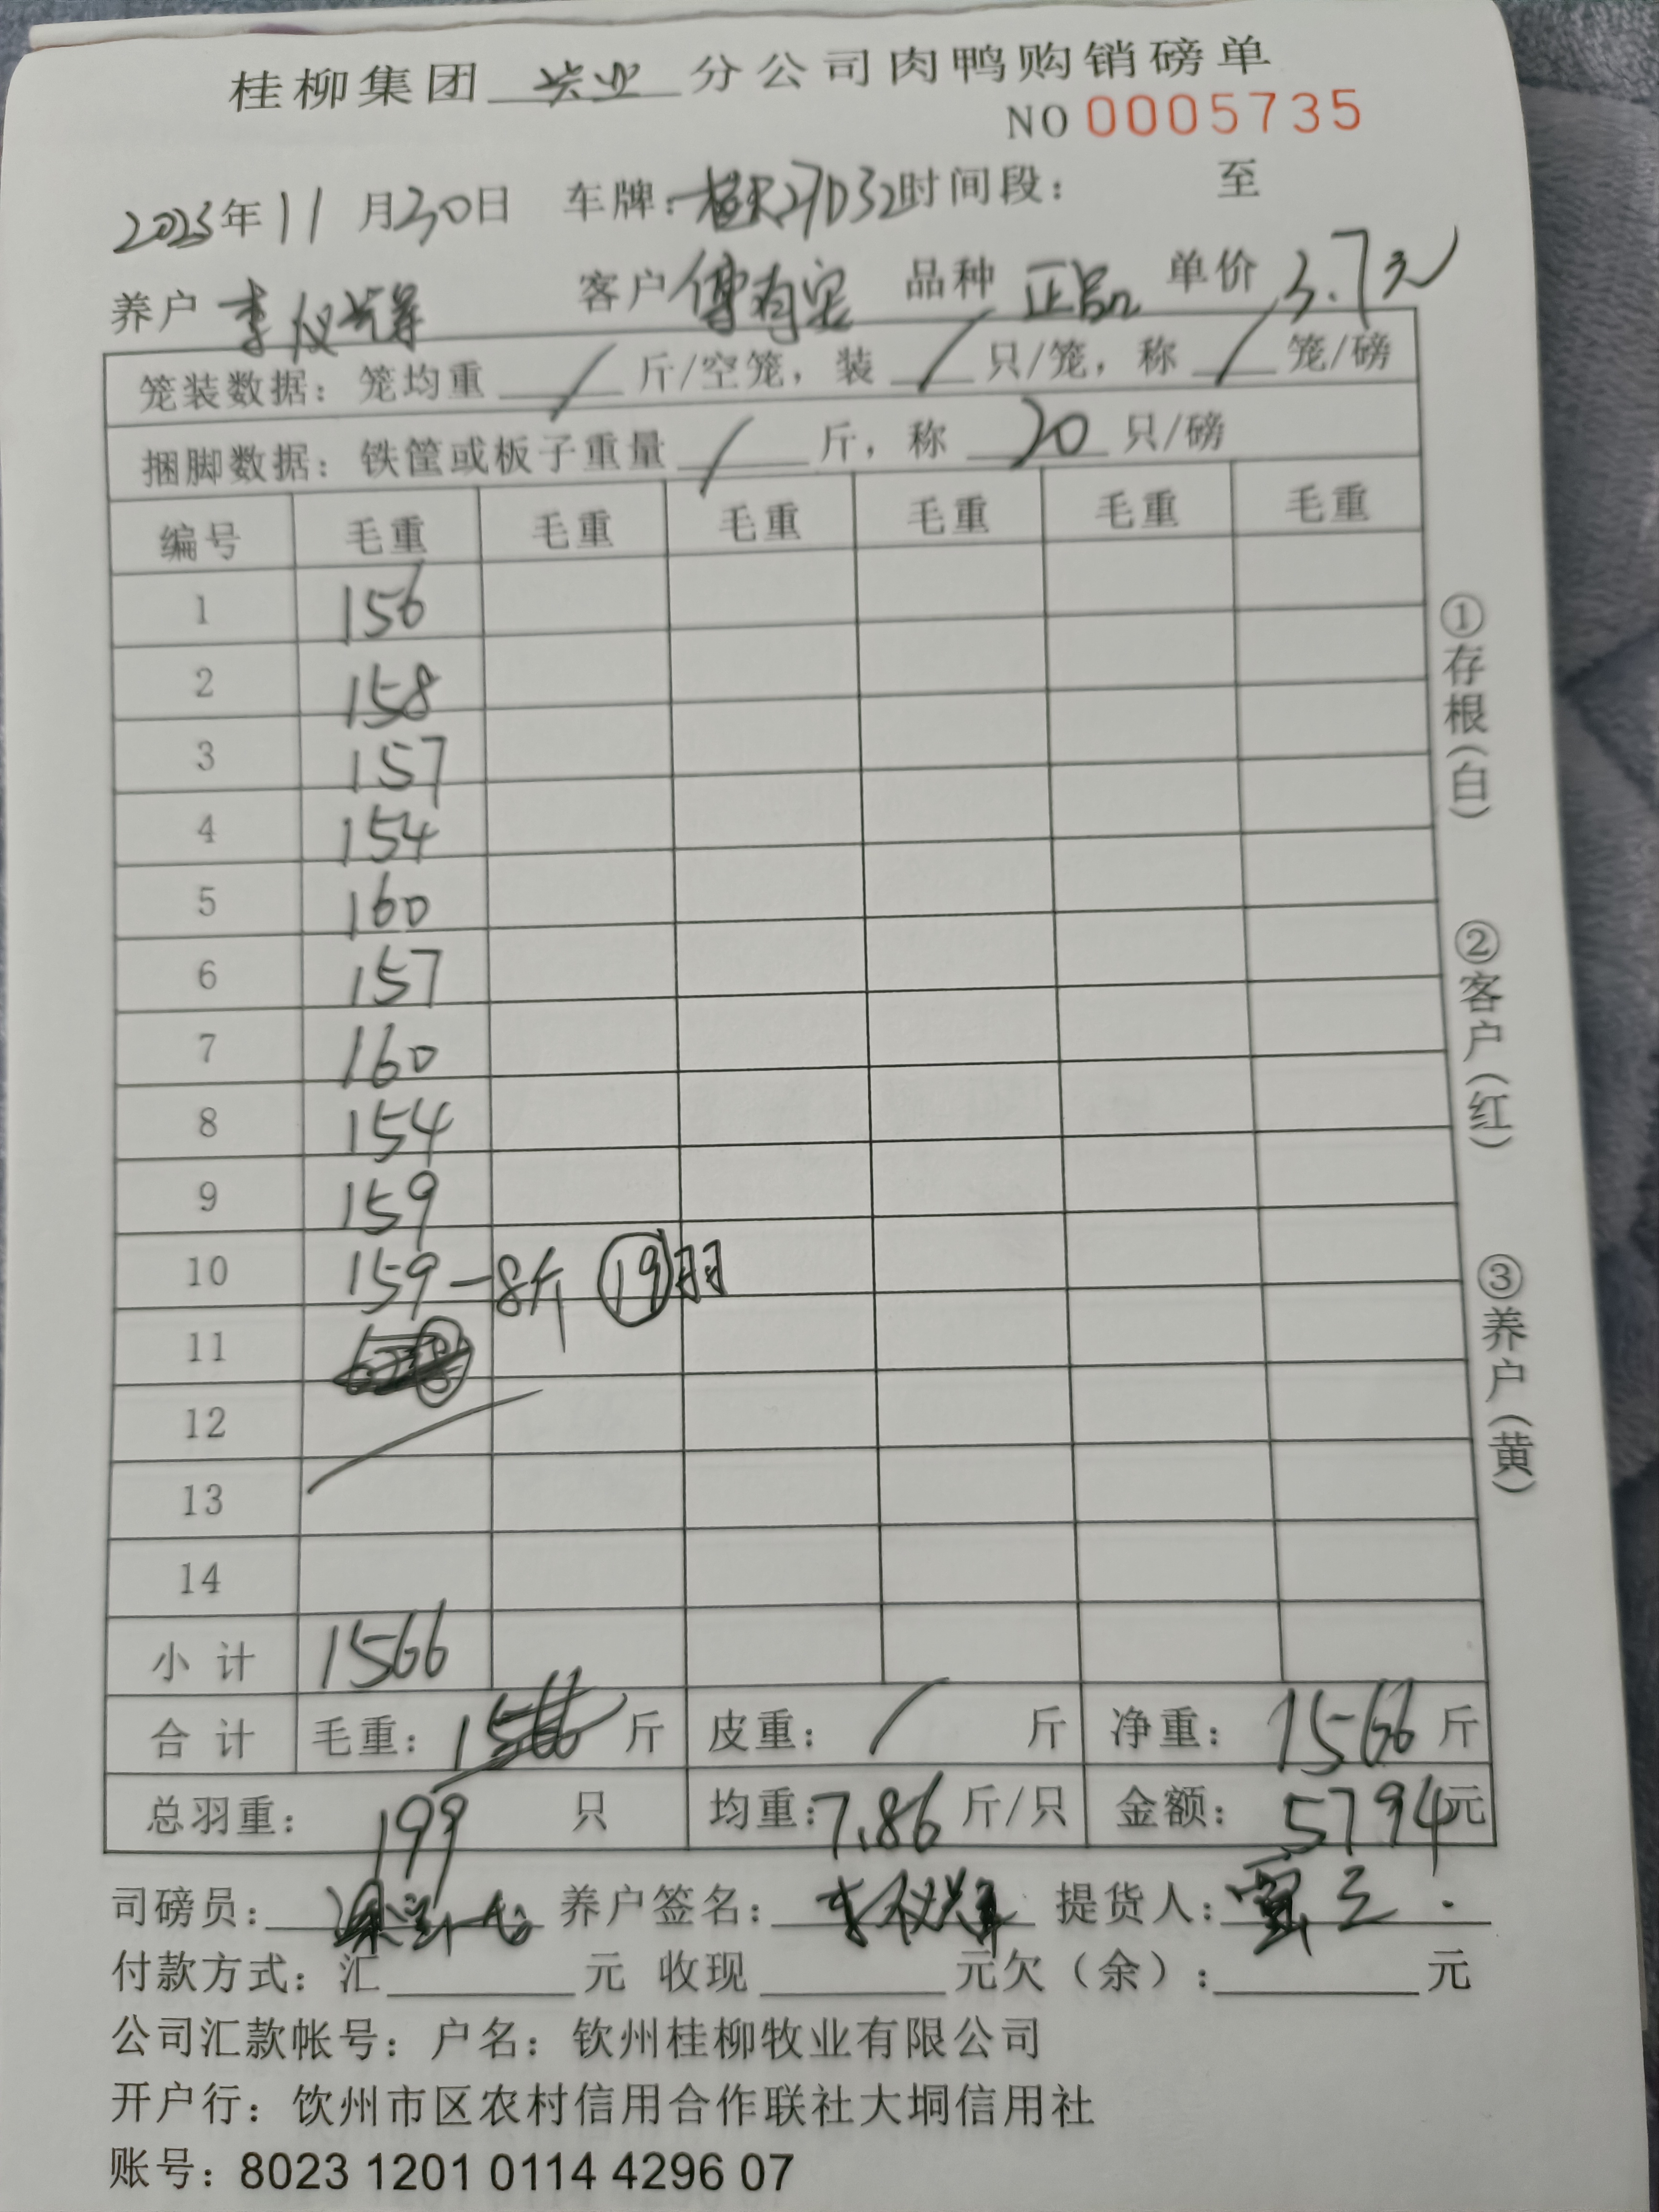 桂柳集团 兴业 分公司肉鸭购销磅单
NO 0005735
2025年11月30日 车牌: 27D32 时间段: 至
养户 李仪 客户 傅有 品种 正品 单价 3.7元
笼装数据: 笼均重 / 斤/空笼, 装 / 只/笼, 称 / 笼/磅
捆脚数据: 铁筐或板子重量 / 斤, 称 20 只/磅
编号 毛重 毛重 毛重 毛重 毛重 毛重
1 156
2 158
3 157
4 154
5 160
6 157
7 160
8 154
9 159
10 159-8斤 19羽
11
12
13
14
小计 1566
合计 毛重: 1566 斤 皮重: / 斤 净重: 1566 斤
总羽重: 199 只 均重: 7.86 斤/只 金额: 5794元
司磅员: 养户签名: 李仪 提货人:
付款方式: 汇 元 收现 元欠(余): 元
公司汇款帐号: 户名: 钦州桂柳牧业有限公司
开户行: 饮州市区农村信用合作联社大垌信用社
账号: 8023 1201 0114 4296 07
①存根(白)
②客户(红)
③养户(黄)